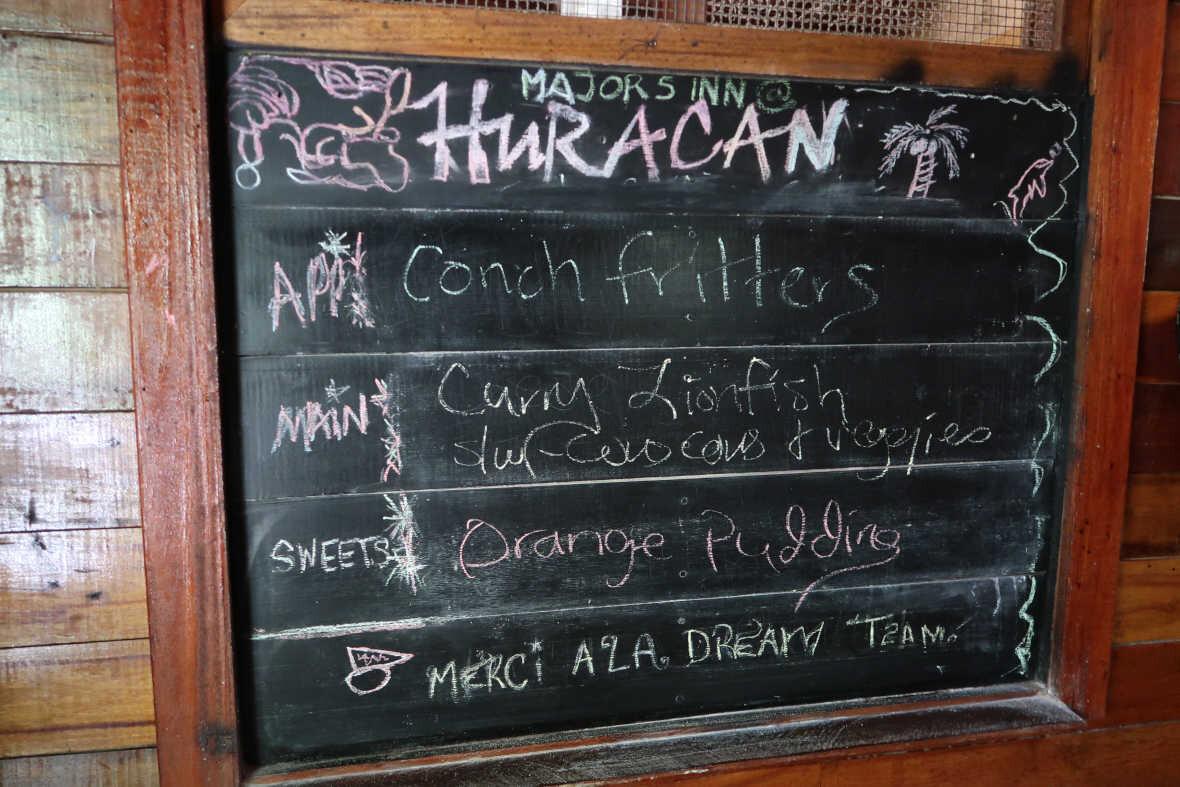 MAJORS INN @
HURACAN
APP! Conch fritters
MAIN Curry Lionfish
couscous & veggies
SWEETS Orange Pudding
MERCI A LA DREAM TEAM.